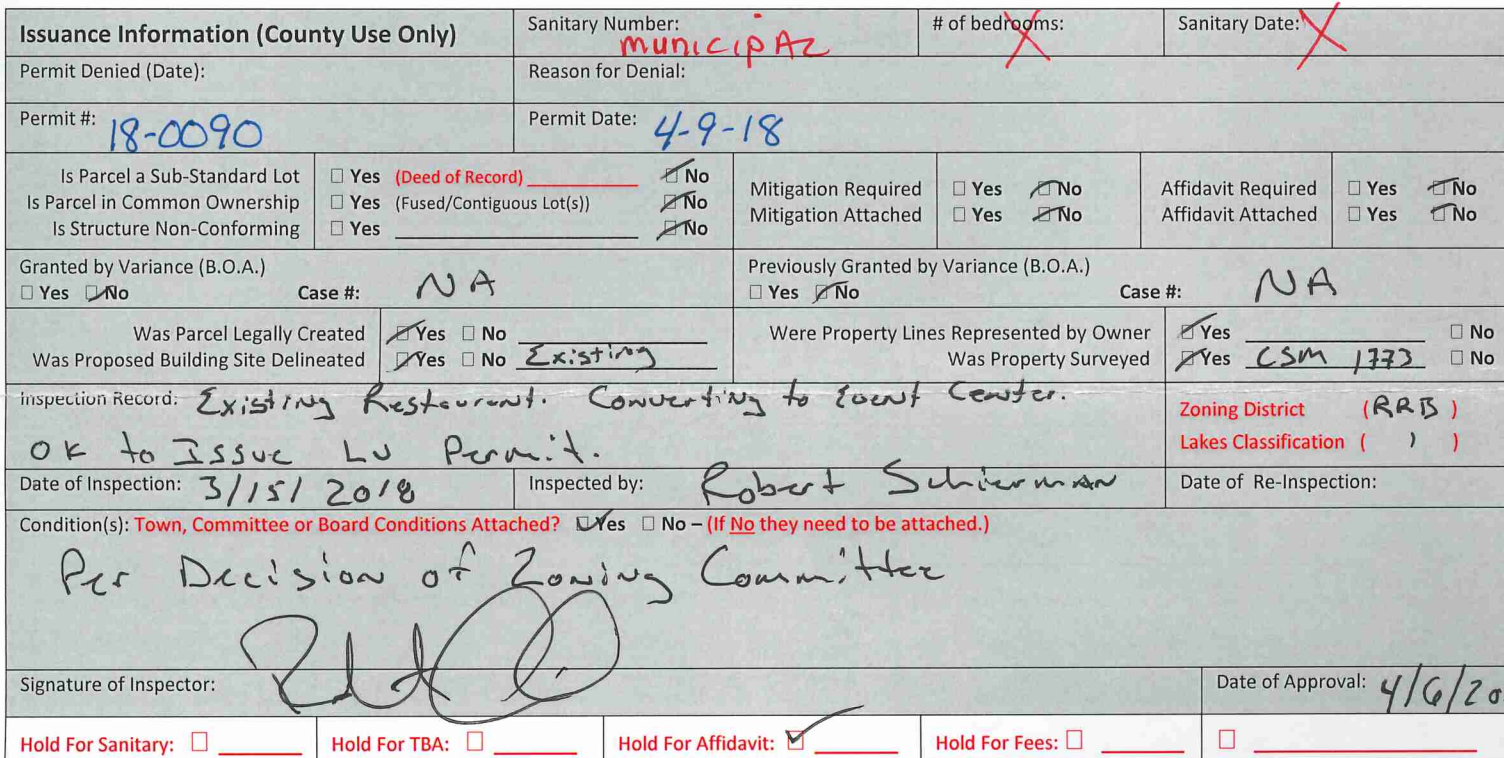 Issuance Information (County Use Only) Sanitary Number: municipAL # of bedrooms: X Sanitary Date: X
Permit Denied (Date): Reason for Denial:
Permit #: 18-0090 Permit Date: 4-9-18
Is Parcel a Sub-Standard Lot ☐ Yes (Deed of Record) ☑ No
Is Parcel in Common Ownership ☐ Yes (Fused/Contiguous Lot(s)) ☑ No
Is Structure Non-Conforming ☐ Yes ☑ No
Mitigation Required ☐ Yes ☑ No
Mitigation Attached ☐ Yes ☑ No
Affidavit Required ☐ Yes ☑ No
Affidavit Attached ☐ Yes ☑ No
Granted by Variance (B.O.A.)
☐ Yes ☑ No Case #: NA
Previously Granted by Variance (B.O.A.)
☐ Yes ☑ No Case #: NA
Was Parcel Legally Created ☑ Yes ☐ No
Was Proposed Building Site Delineated ☑ Yes ☐ No Existing
Were Property Lines Represented by Owner ☑ Yes ☐ No
Was Property Surveyed ☑ Yes CSM 1773 ☐ No
Inspection Record: Existing Restaurant. Converting to Event Center.
OK to Issue LU Permit.
Zoning District (RRB)
Lakes Classification ( )
Date of Inspection: 3/15/2018 Inspected by: Robert Schierman Date of Re-Inspection:
Condition(s): Town, Committee or Board Conditions Attached? ☑ Yes ☐ No – (If No they need to be attached.)
Per Decision of Zoning Committee
Signature of Inspector: Date of Approval: 4/6/20
Hold For Sanitary: ☐ Hold For TBA: ☐ Hold For Affidavit: ☑ Hold For Fees: ☐ ☐